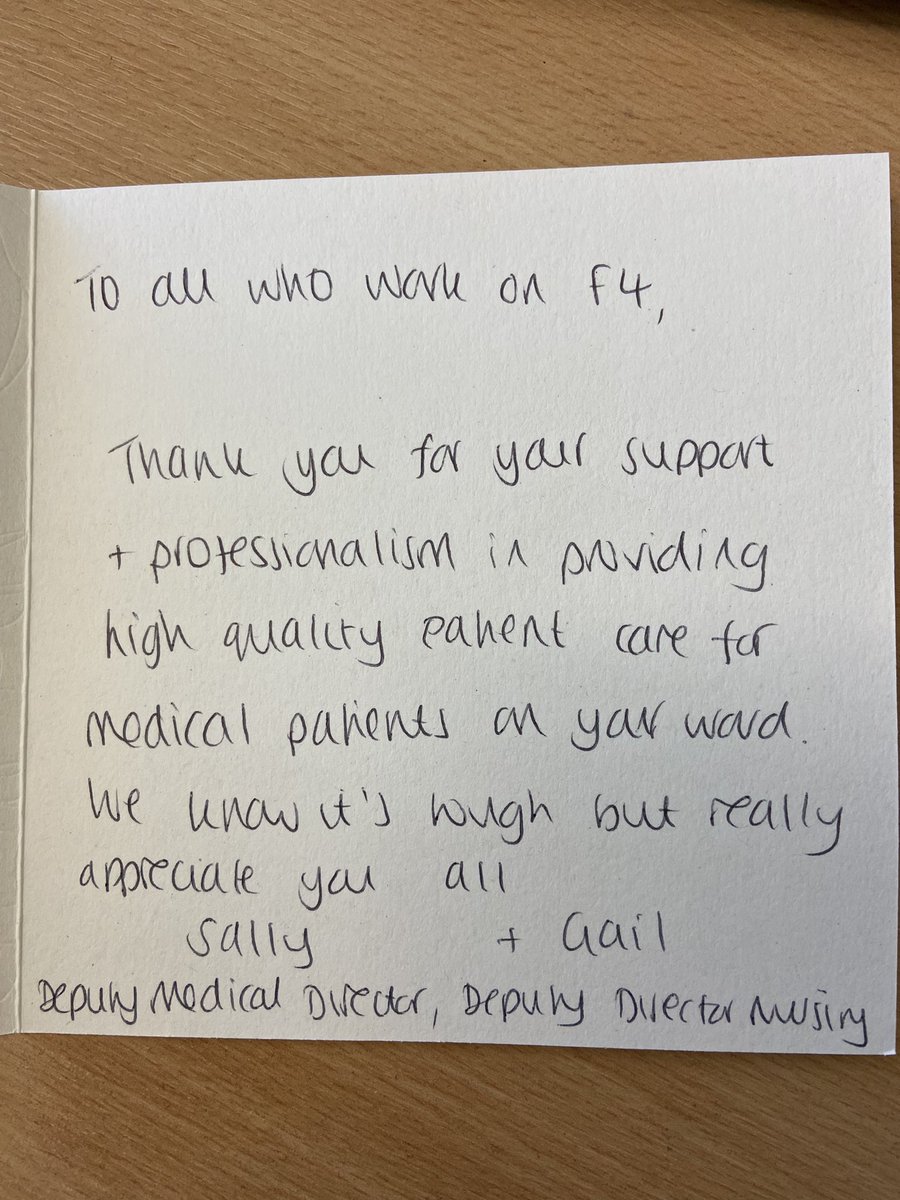 To all who work on F4,
Thank you for your support
+ professionalism in providing
high quality patient care for
medical patients on your ward.
We know it's tough but really
appreciate you all
Sally + Gail
Deputy Medical Director, Deputy Director Nursing